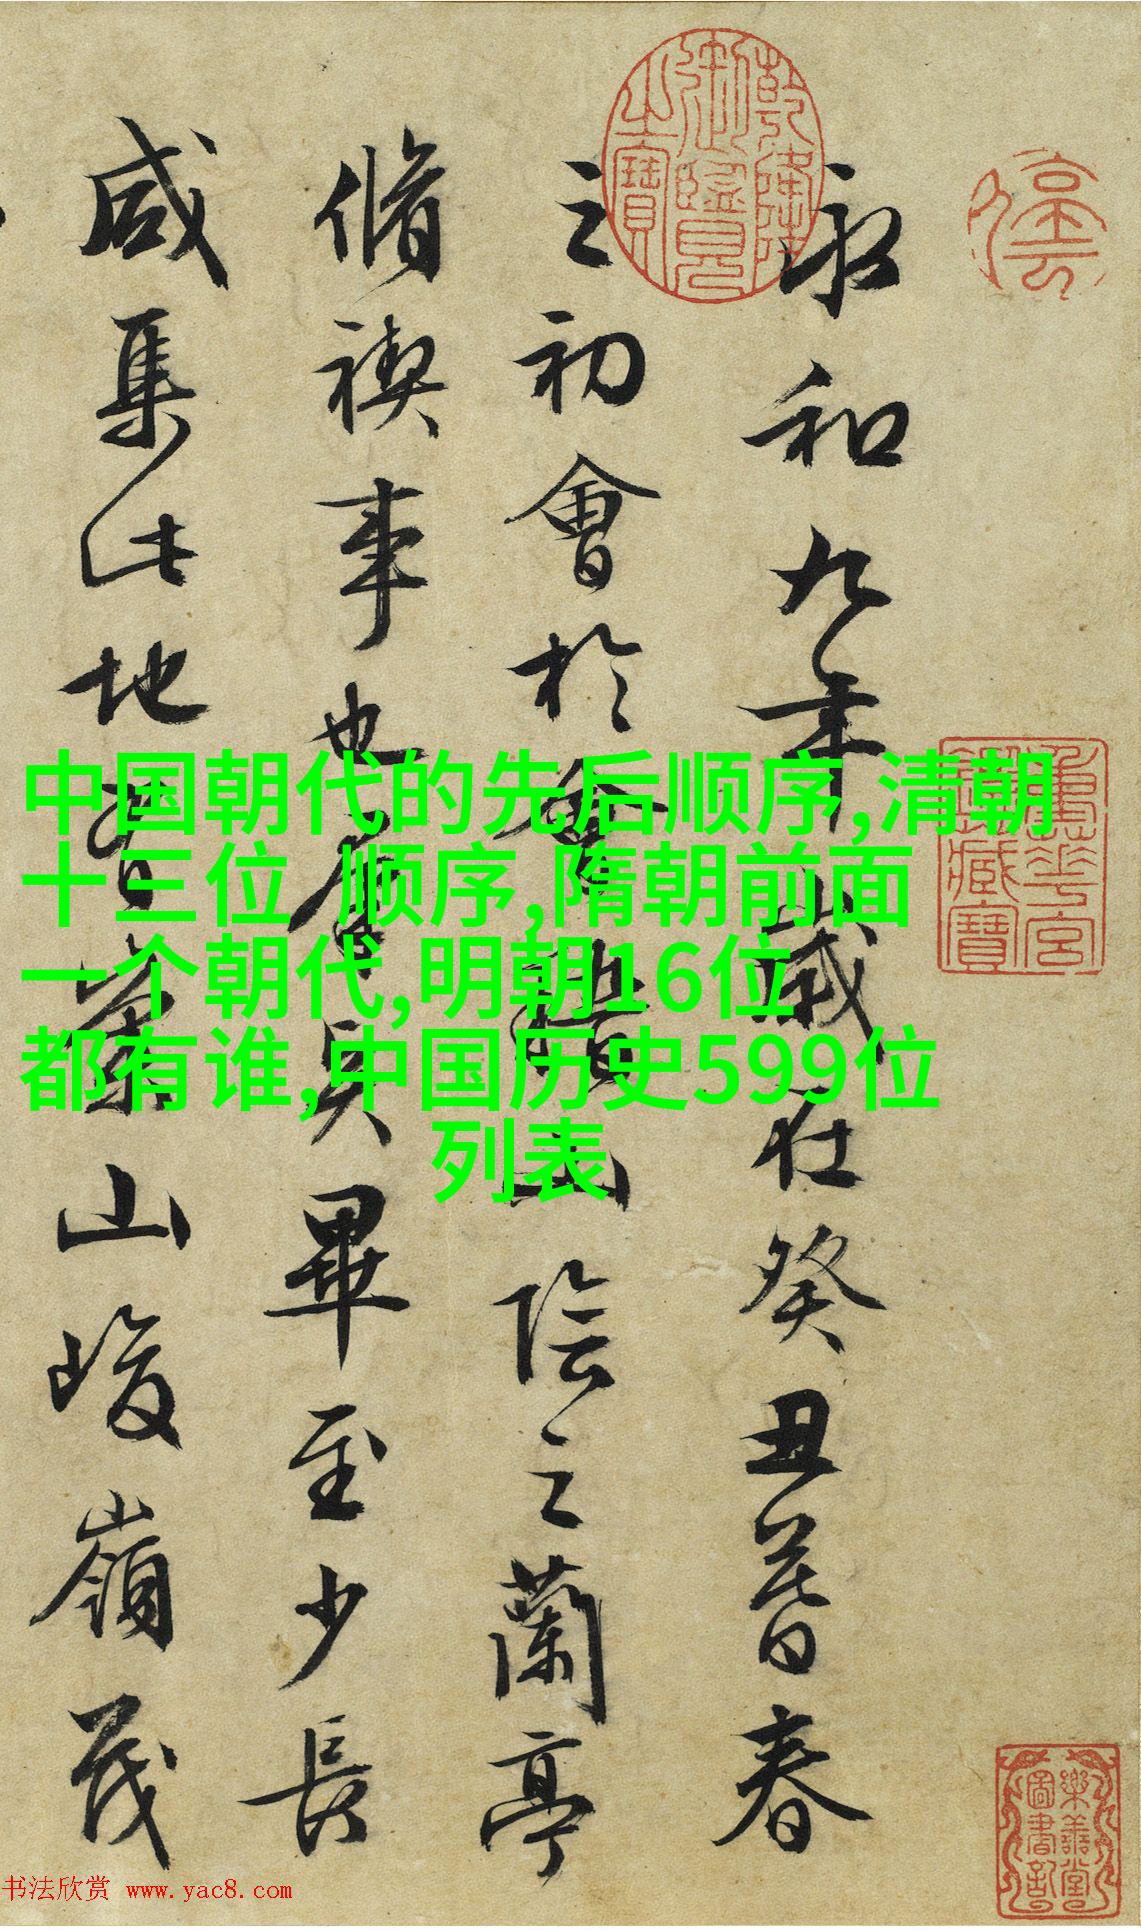 停雲
乾隆御鑑之寶
永和九年歲在癸丑暮春
之初會於會稽山陰之蘭亭
脩禊事也羣賢畢至少長
咸集此地有崇山峻嶺茂
重華宮鑑藏寶
中国朝代的先后顺序,清朝
十三位 顺序,隋朝前面
一个朝代,明朝16位
都有谁,中国历史599位
列表
樂善堂圖書記
书法欣赏 www.yac8.com